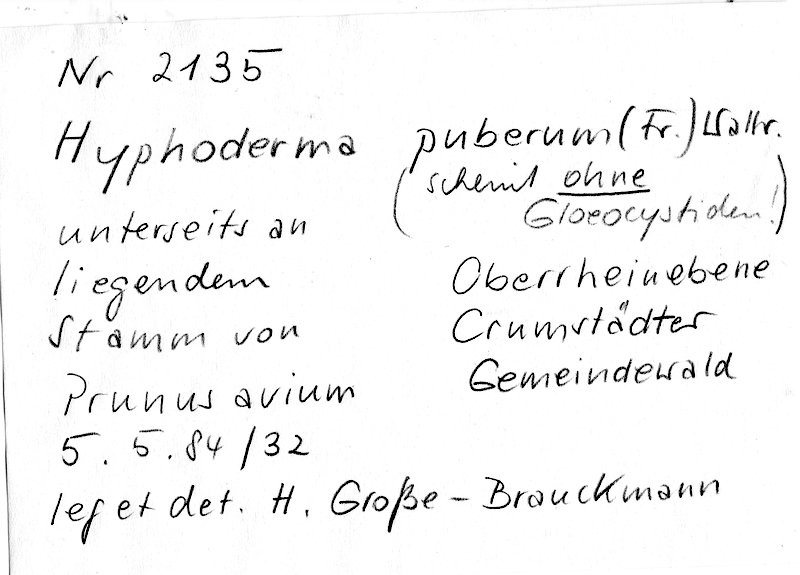 Nr 2135
Hyphoderma puberum (Fr.) Wallr.
(scheint ohne
Gloeocystiden!)
unterseits an
liegendem
Stamm von
Prunus avium
5. 5. 84 / 32
Oberrheinebene
Crumstädter
Gemeindewald
leg et det. H. Große-Brauckmann